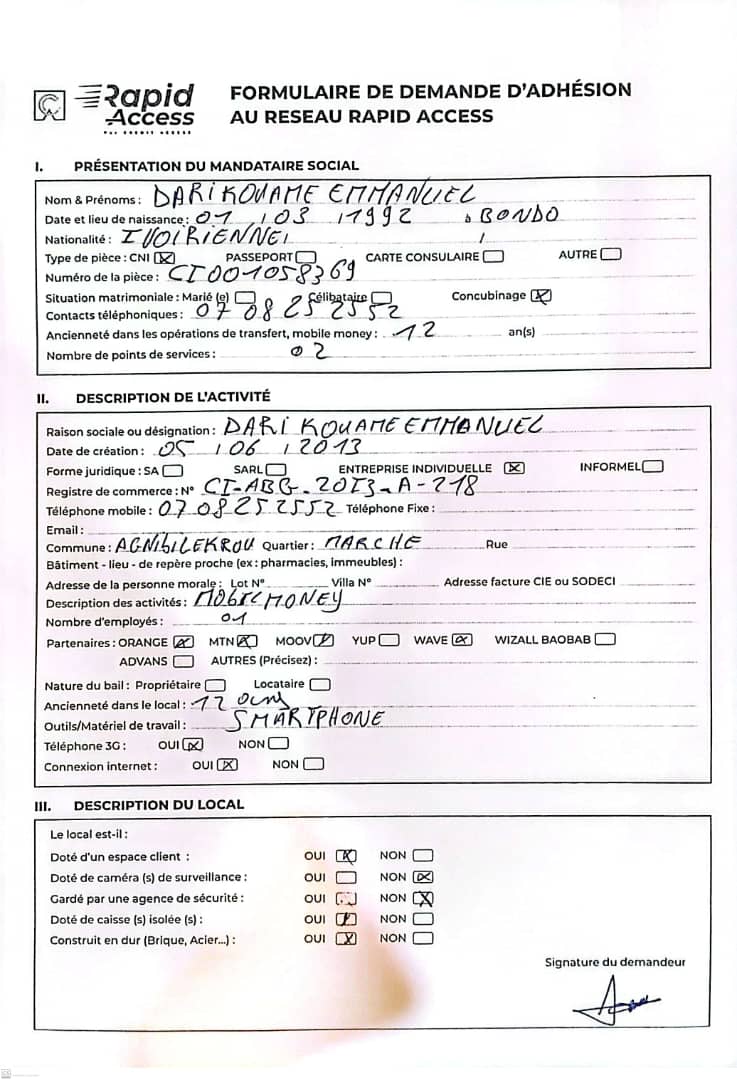 Rapid Access
FORMULAIRE DE DEMANDE D'ADHÉSION
AU RESEAU RAPID ACCESS
I. PRÉSENTATION DU MANDATAIRE SOCIAL
Nom & Prénoms : DARI KOUAME EMMANUEL
Date et lieu de naissance : 01 / 03 / 1992 à BONDO
Nationalité : IVOIRIENNE /
Type de pièce : CNI ☒ PASSEPORT ☐ CARTE CONSULAIRE ☐ AUTRE ☐
Numéro de la pièce : CI001058369
Situation matrimoniale : Marié (e) ☐ Célibataire ☐ Concubinage ☒
Contacts téléphoniques : 07 08 25 25 52
Ancienneté dans les opérations de transfert, mobile money : 12 an(s)
Nombre de points de services : 02
II. DESCRIPTION DE L'ACTIVITÉ
Raison sociale ou désignation : DARI KOUAME EMMANUEL
Date de création : 05 / 06 / 2013
Forme juridique : SA ☐ SARL ☐ ENTREPRISE INDIVIDUELLE ☒ INFORMEL ☐
Registre de commerce : N° CI-ABG-2013-A-218
Téléphone mobile : 0708252552 Téléphone Fixe :
Email :
Commune : AGNIBILEKROU Quartier : MARCHE Rue
Bâtiment - lieu - de repère proche (ex : pharmacies, immeubles) :
Adresse de la personne morale : Lot N° Villa N° Adresse facture CIE ou SODECI
Description des activités : MOBIL MONEY
Nombre d'employés : 01
Partenaires : ORANGE ☒ MTN ☒ MOOV ☒ YUP ☐ WAVE ☒ WIZALL BAOBAB ☐
ADVANS ☐ AUTRES (Précisez) :
Nature du bail : Propriétaire ☐ Locataire ☐
Ancienneté dans le local : 12 ans
Outils/Matériel de travail : SMARTPHONE
Téléphone 3G : OUI ☒ NON ☐
Connexion internet : OUI ☒ NON ☐
III. DESCRIPTION DU LOCAL
Le local est-il :
Doté d'un espace client : OUI ☒ NON ☐
Doté de caméra (s) de surveillance : OUI ☐ NON ☒
Gardé par une agence de sécurité : OUI ☐ NON ☒
Doté de caisse (s) isolée (s) : OUI ☒ NON ☐
Construit en dur (Brique, Acier...) : OUI ☒ NON ☐
Signature du demandeur